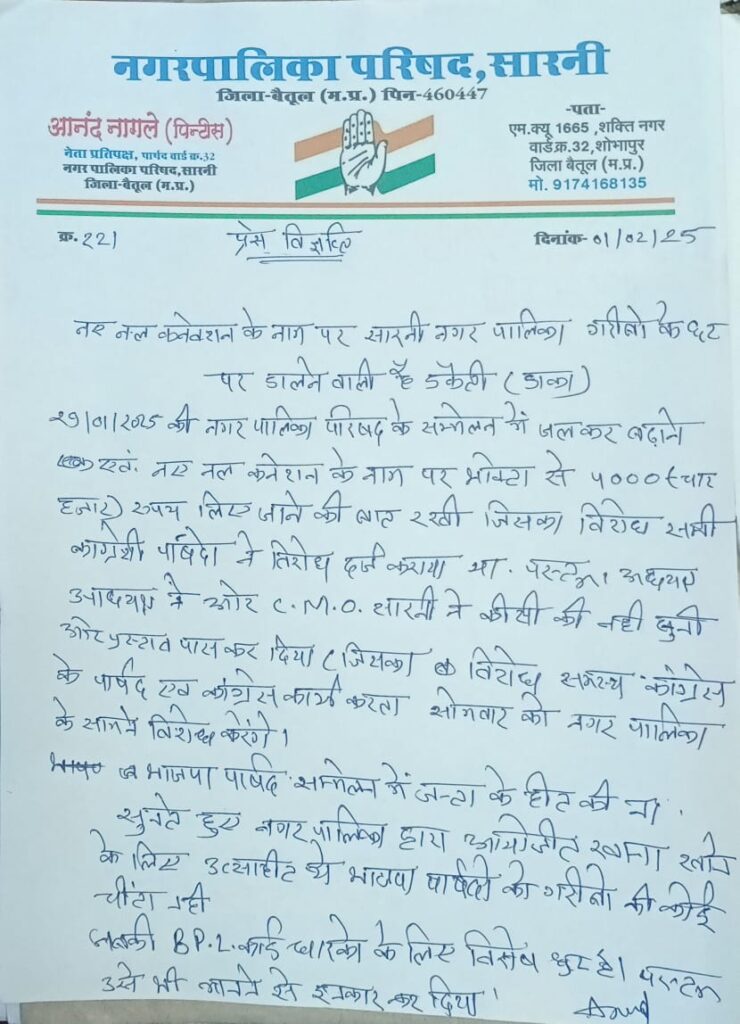 नगरपालिका परिषद,सारनी
जिला-बैतूल (म.प्र.) पिन-460447
आनंद नागले (पिन्टीस)
नेता प्रतिपक्ष, पार्षद वार्ड क्र.32
नगर पालिका परिषद,सारनी
जिला-बैतूल (म.प्र.)
-पता-
एम.क्यू 1665 ,शक्ति नगर
वार्डक्र.32,शोभापुर
जिला बैतूल (म.प्र.)
मो. 9174168135
क्र. 221
प्रेस विज्ञप्ति
दिनांक- 01/02/25
नए नल कनेक्शन के नाम पर सारनी नगर पालिका गरीबो के घर
पर डालने वाली है डकेती (डाका)
29/01/2025 की नगर पालिका परिषद के सम्मेलन में जलकर बढ़ाने
एवं नए नल कनेशन के नाम पर भोक्टा से 4000 (चार
हजार) रुपय लिए जाने की बात रखी जिसका विरोध सभी
कांग्रेशी पार्षदो ने विरोध दर्ज कराया था. परन्तु. अध्यक्ष
उपाध्यक्ष ने ओर C.M.O. सारनी ने कीसी की नही सुनी
ओर प्रस्ताव पास कर दिया (जिसका विरोध समस्थ कांग्रेस
के पार्षद एवं कांग्रेस कार्य करता सोमवार को नगर पालिका
के सामने विरोध करेंगे।
भाजपा पार्षद सम्मेलन में जन्ता के हीत की ना
सुनते हुए नगर पालिका द्वारा आयोजीत खाना खाने
के लिए उत्साहीट थे भाजपा पार्षदो को गरीबो की कोई
चींता नही
जबकी B.P.L. कार्ड धारको के लिए विसेष छुट है। परन्तु
उसे भी मानने से इनकार कर दिया।